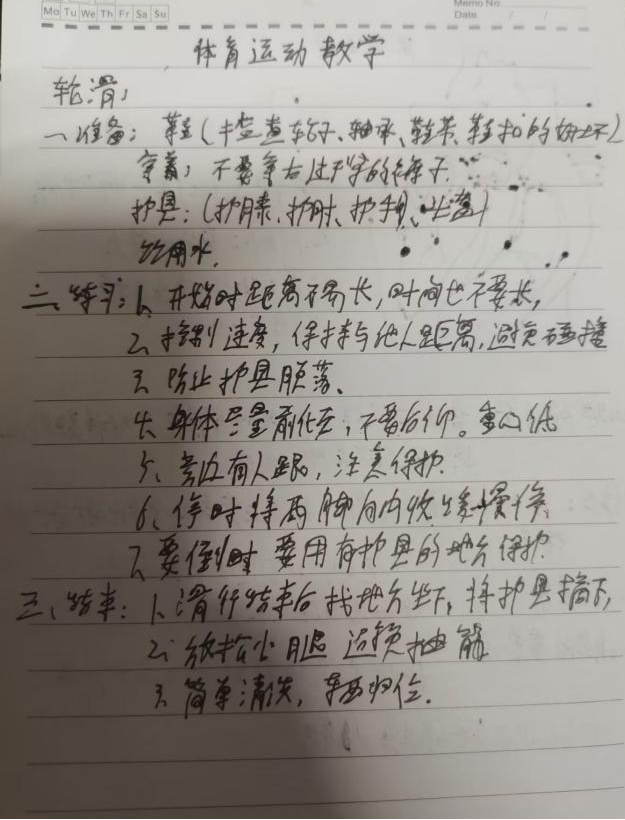 Mo Tu We Th Fr Sa Su
Memo No.
Date / /
体育运动教学
轮滑:
一、准备: 鞋(检查轮子、轴承、鞋带、鞋扣的好坏)
穿着: 不要穿的裤子.
护具: (护膝、护肘、护手、头盔)
饮用水.
二、练习: 1、开始时距离不易长,时间也不要长,
2、控制速度, 保持与他人距离,避免碰撞
3、防止护具脱落、
4、身体尽量前倾,不要后仰。重心低
5、旁边有人跟, 注意保护.
6、停时将两脚向内收缓慢停.
7、要倒时 要用有护具的地方保护.
三、结束: 1、滑行结束后找地方坐下, 将护具摘下,
2、放松小腿 避免抽筋
3、简单清洗, 东西归位.